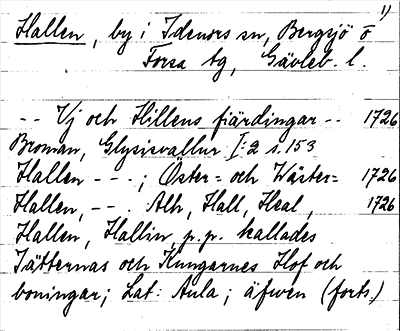 1)
Hallen, by i Idenors sn, Bergsjö o
Forsa tg, Gävleb. l.
-- Vj och Hillens fiärdingar -- 1726
Broman, Glysisvallur I:2 s. 153
Hallen ---; Öster= och Wäster= 1726
Hallen, --. Alh, Hall, Heal, 1726
Hallen, Hallin, p.p. kallades
Jätternas och Kungarnes Hof och
boningar; Lat: Aula; äfwen (forts.)